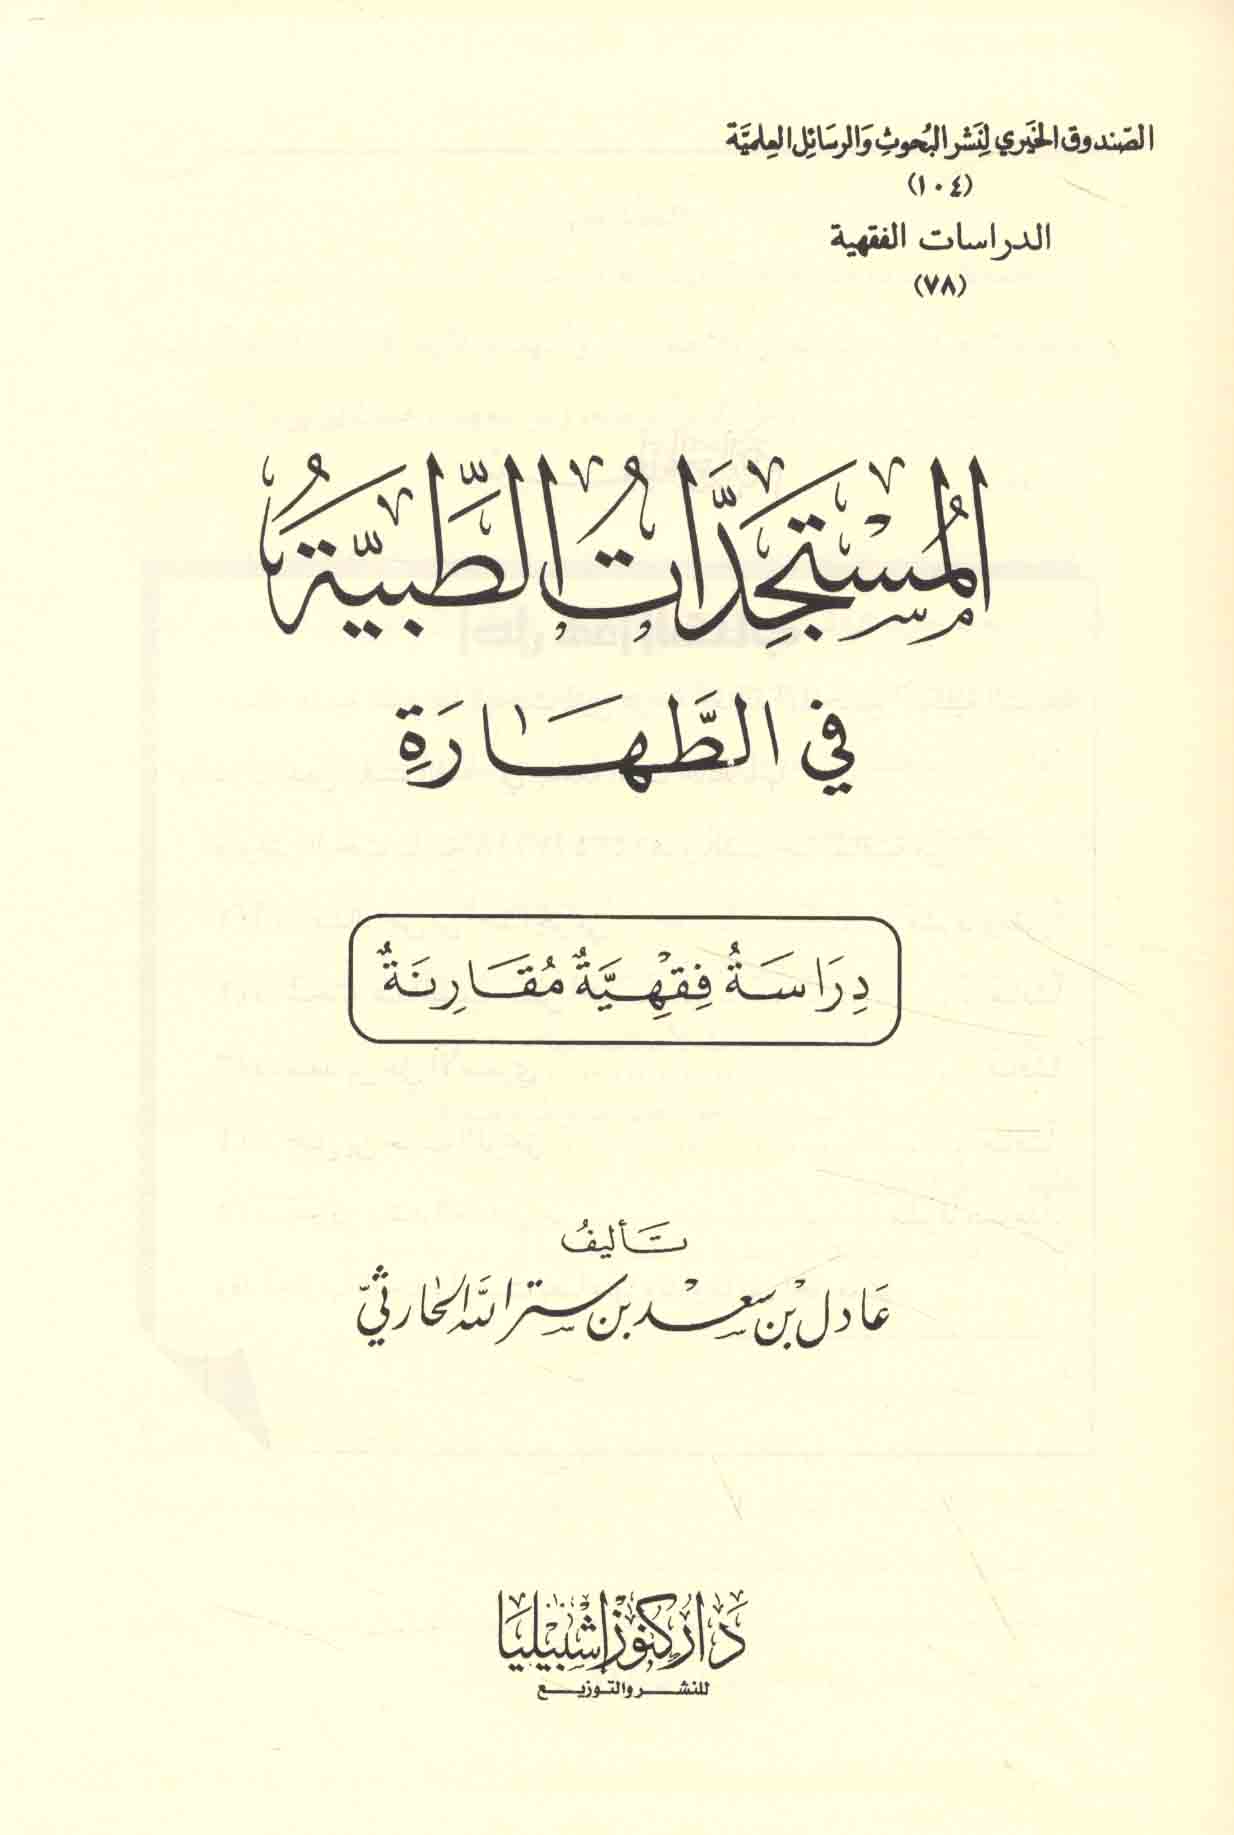 الصندوق الخيري لنشر البحوث والرسائل العلمية
(١٠٤)
الدراسات الفقهية
(٧٨)
المُسْتَجِدَّاتُ الطِّبِّيَّةُ
فِي الطَّهَارَةِ
دِرَاسَةٌ فِقْهِيَّةٌ مُقَارِنَةٌ
تأليفُ
عَادل بْن سعْد بن ستر الله الحَارثيّ
دار كنوز إشبيليا
للنشر والتوزيع